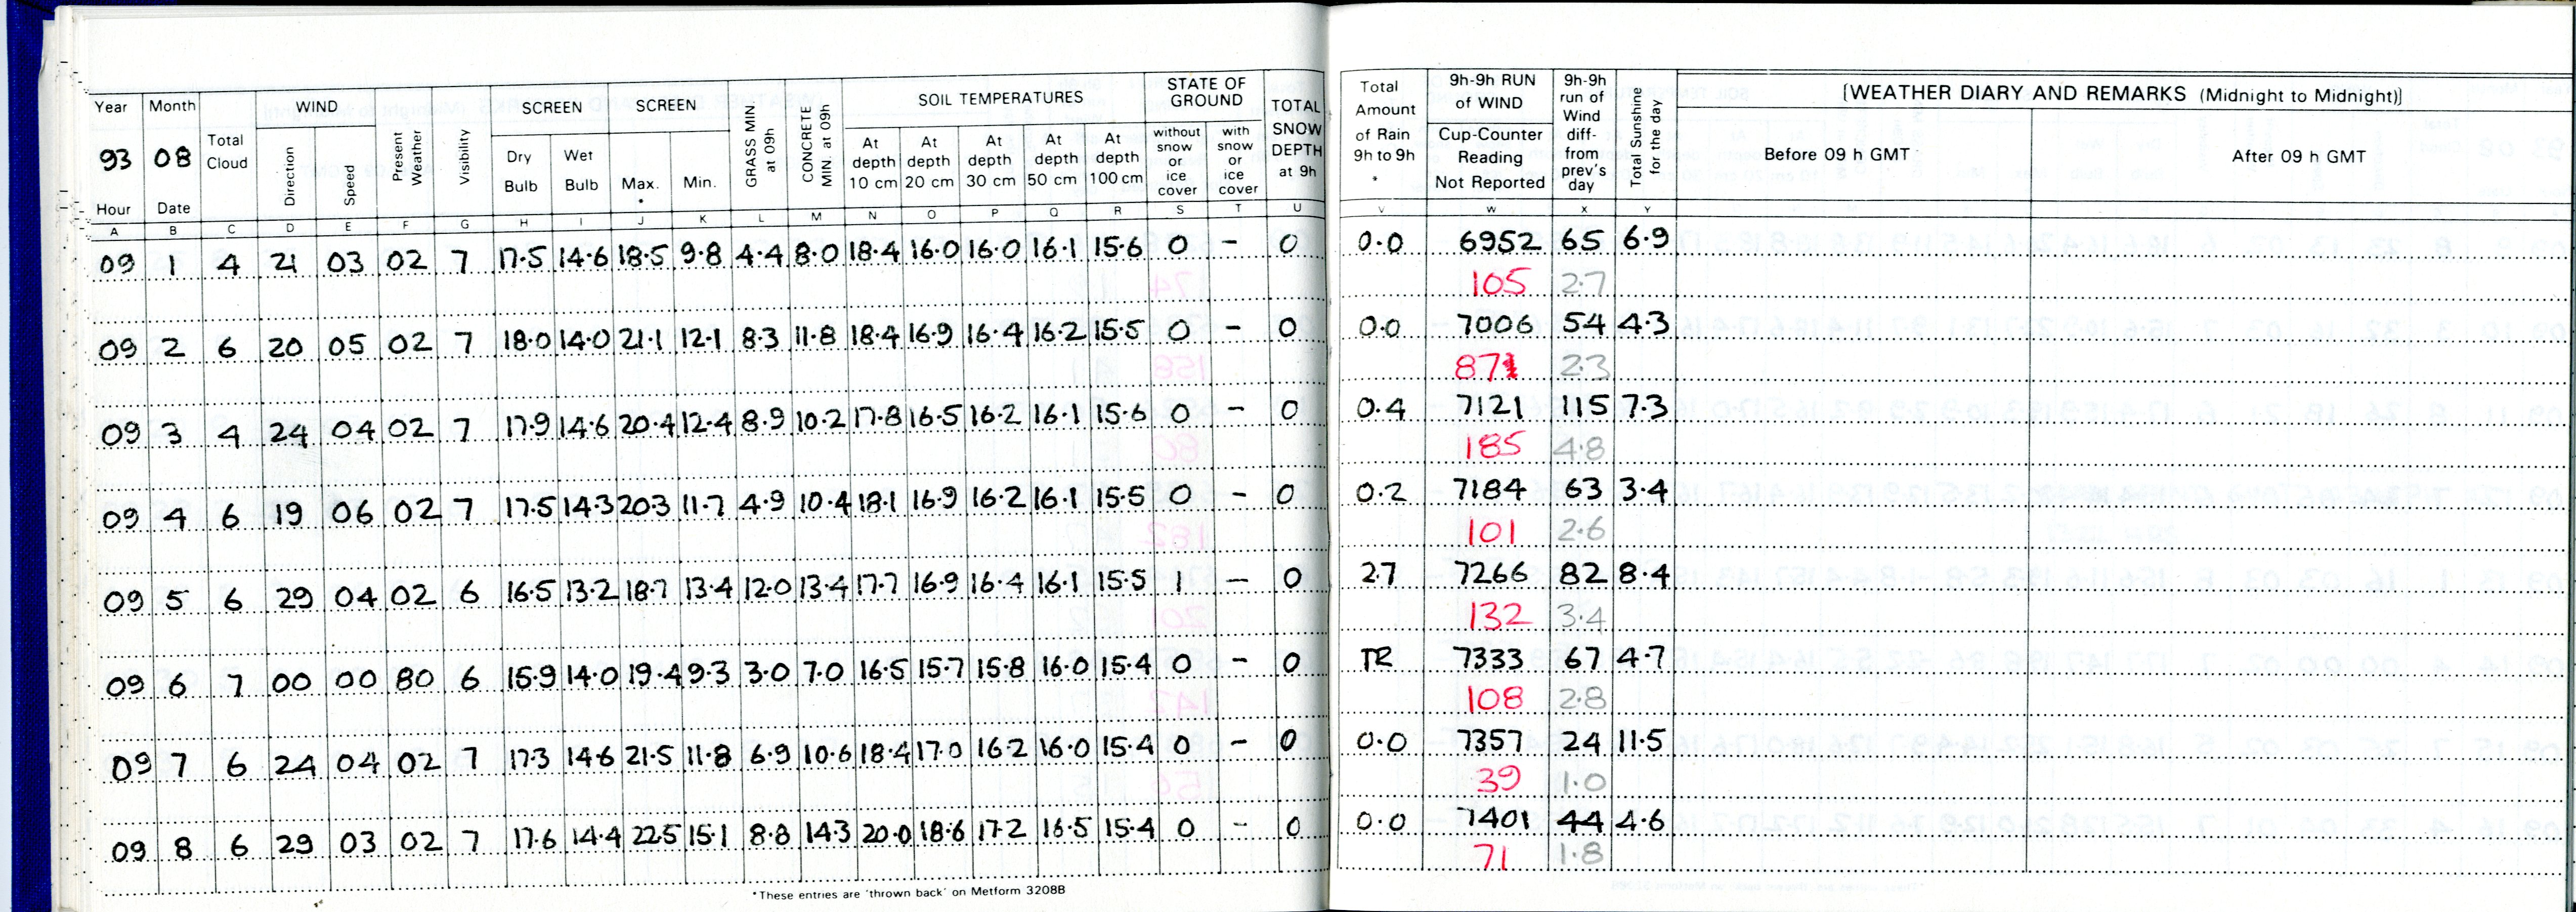 Year Month Total Cloud WIND Present Weather Visibility SCREEN SCREEN GRASS MIN. at 09h CONCRETE MIN. at 09h SOIL TEMPERATURES STATE OF GROUND TOTAL SNOW DEPTH at 9h Total Amount of Rain 9h to 9h * 9h-9h RUN of WIND 9h-9h run of Wind diff- from prev's day Total Sunshine for the day [WEATHER DIARY AND REMARKS (Midnight to Midnight)]
93 08 Direction Speed Dry Bulb Wet Bulb Max. * Min. At depth 10 cm At depth 20 cm At depth 30 cm At depth 50 cm At depth 100 cm without snow or ice cover with snow or ice cover Cup-Counter Reading Not Reported Before 09 h GMT After 09 h GMT
Hour Date
A B C D E F G H I J K L M N O P Q R S T U V W X Y
09 1 4 21 03 02 7 17.5 14.6 18.5 9.8 4.4 8.0 18.4 16.0 16.0 16.1 15.6 0 - 0 0.0 6952 65 6.9
105 2.7
09 2 6 20 05 02 7 18.0 14.0 21.1 12.1 8.3 11.8 18.4 16.9 16.4 16.2 15.5 0 - 0 0.0 7006 54 4.3
87 2.3
09 3 4 24 04 02 7 17.9 14.6 20.4 12.4 8.9 10.2 17.8 16.5 16.2 16.1 15.6 0 - 0 0.4 7121 115 7.3
185 4.8
09 4 6 19 06 02 7 17.5 14.3 20.3 11.7 4.9 10.4 18.1 16.9 16.2 16.1 15.5 0 - 0 0.2 7184 63 3.4
101 2.6
09 5 6 29 04 02 6 16.5 13.2 18.7 13.4 12.0 13.4 17.7 16.9 16.4 16.1 15.5 1 - 0 2.7 7266 82 8.4
132 3.4
09 6 7 00 00 80 6 15.9 14.0 19.4 9.3 3.0 7.0 16.5 15.7 15.8 16.0 15.4 0 - 0 TR 7333 67 4.7
108 2.8
09 7 6 24 04 02 7 17.3 14.6 21.5 11.8 6.9 10.6 18.4 17.0 16.2 16.0 15.4 0 - 0 0.0 7357 24 11.5
39 1.0
09 8 6 29 03 02 7 17.6 14.4 22.5 15.1 8.8 14.3 20.0 18.6 17.2 16.5 15.4 0 - 0 0.0 7401 44 4.6
71 1.8
*These entries are 'thrown back' on Metform 3208B